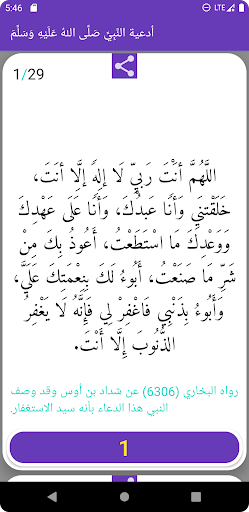 5:46 LTE
أدعية النّبيِّ صَلَّى اللهُ عَلَيْهِ وَسَلَّمَ
1/29
اللَّهُمَّ أَنْتَ رَبِّي لَا إِلَهَ إِلَّا أَنتَ،
خَلَقْتَنِي وَأَنَا عَبدُكَ، وَأَنَا عَلَى عَهْدِكَ
وَوَعْدِكَ مَا اسْتَطَعْتُ، أَعُوذُ بِكَ مِنْ
شَرِّ مَا صَنَعْتُ، أَبُوءُ لَكَ بِنِعْمَتِكَ عَلَيَّ،
وَأَبُوءُ بِذَنْبِي فَاغْفِرْ لِي فَإِنَّهُ لَا يَغْفِرُ
الذُّنُوبَ إِلَّا أَنْتَ.
رواه البخاري (6306) عن شداد بن أوس وقد وصف
النبي هذا الدعاء بأنه سيد الاستغفار.
1